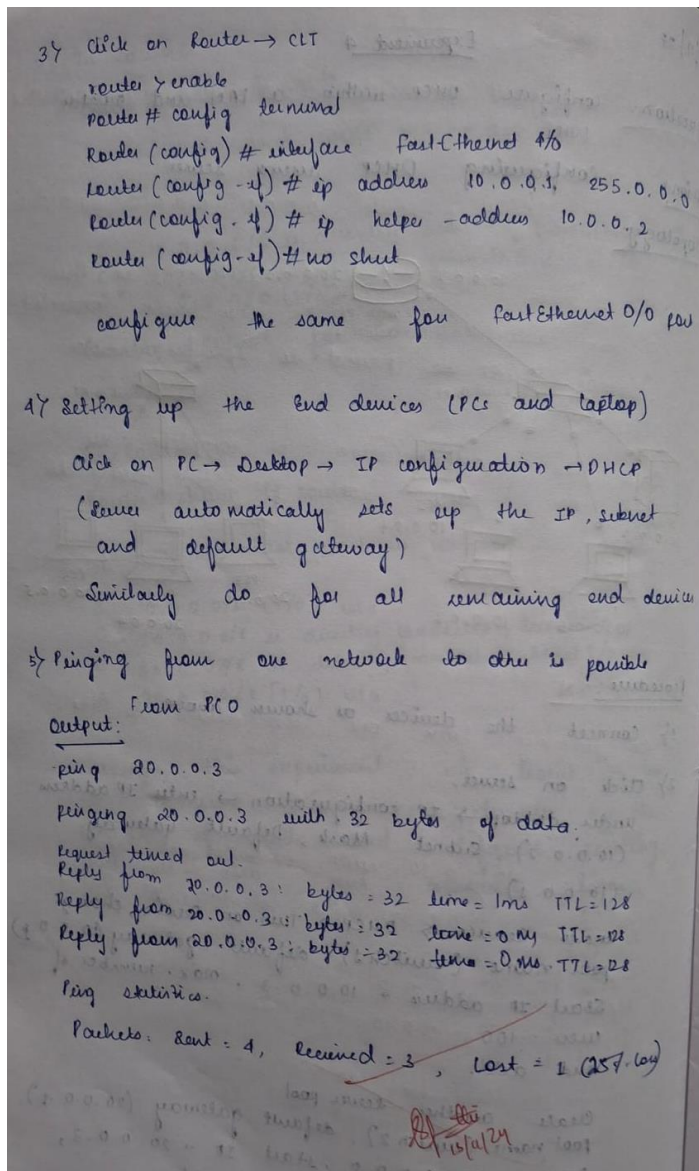 3) Click on Router → CLI
router > enable
Router # config terminal
Router (config) # interface FastEthernet 4/0
Router (config-if) # ip address 10.0.0.1 255.0.0.0
Router (config-if) # ip helper-address 10.0.0.2
Router (config-if) # no shut
configure the same for FastEthernet 0/0
4) Setting up the End devices (PCs and laptop)
Click on PC → Desktop → IP configuration → DHCP
(Server automatically sets up the IP, subnet
and default gateway)
Similarly do for all remaining end devices
5) Pinging from one network to other is possible
From PC0
Output:
ping 20.0.0.3
pinging 20.0.0.3 with 32 bytes of data:
Request timed out.
Reply from 20.0.0.3: bytes = 32 time = 1ms TTL=128
Reply from 20.0.0.3: bytes = 32 time = 0ms TTL=128
Reply from 20.0.0.3: bytes = 32 time = 0ms TTL=128
Ping statistics.
Packets: Sent = 4, Received = 3, Lost = 1 (25% loss)